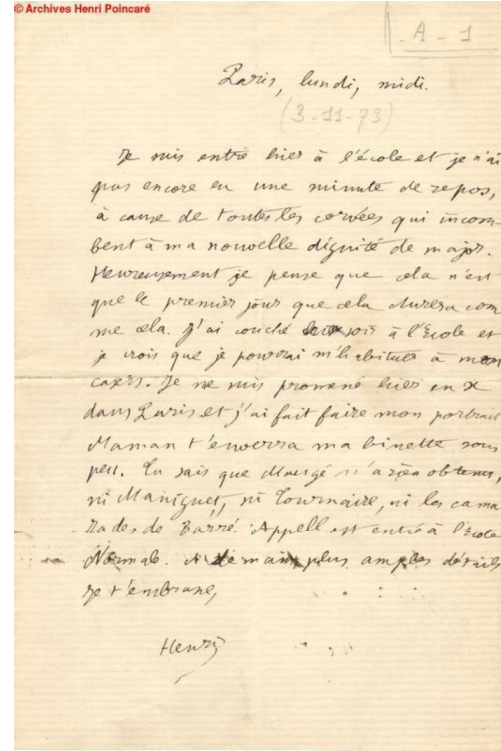 © Archives Henri Poincaré
A - 1
Paris, lundi, midi.
(3-11-73)
Je suis entré hier à l'école et je n'ai
pas encore eu une minute de repos,
à cause de toutes les corvées qui incom-
bent à ma nouvelle dignité de major.
Heureusement je pense que cela n'est
que le premier jour que cela durera com
me cela. J'ai couché soir à l'Ecole et
je crois que je pourrai m'habituer à mon
casers. Je me suis promené hier en X
dans Paris et j'ai fait faire mon portrait
Maman t'enverra ma binette sous
peu. Tu sais que n'a rien obtenu,
ni Maniguet, ni Tournaire, ni les cama
rades de Barré. Appell est entré à l'Ecole
Normale. A demain plus amples détails
Je t'embrasse,
Henri